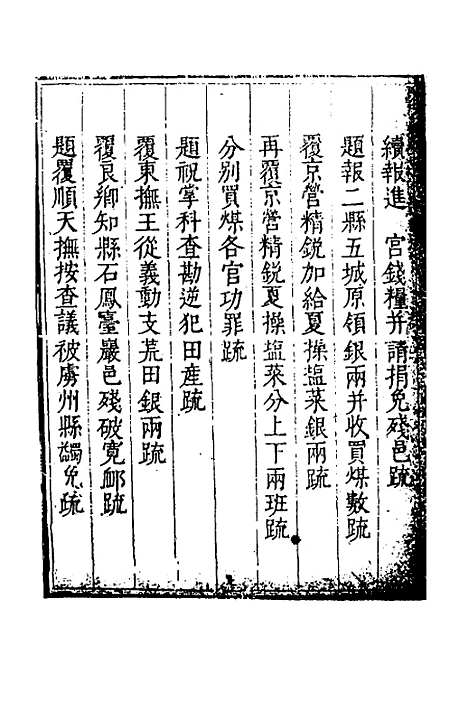 續報進　宮錢糧并請捐免殘邑疏
題報二縣五城原領銀兩并收買煤數疏
覆京營精銳加給夏操塩菜銀兩疏
再覆京營精銳夏操塩菜分上下兩班疏
分别買煤各官功罪疏
題祝掌科查勘逆犯田產疏
覆東撫王從義動支荒田銀兩疏
覆良鄉知縣石鳳臺嚴邑殘破寬邮疏
題覆順天撫按查議被虜州縣蠲免疏